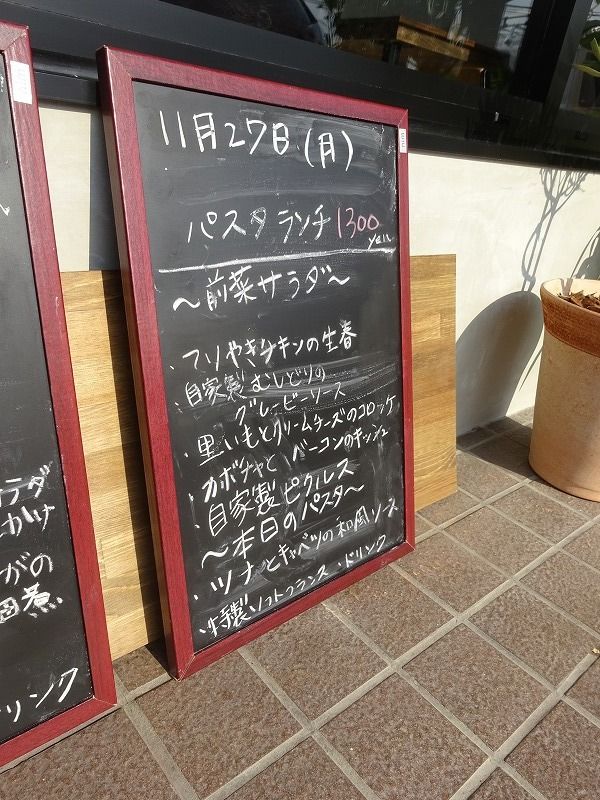 11月27日(月)
パスタランチ 1300
yen
～前菜サラダ～
・テリやきチキンの生春
・自家製むしどりの
グレービーソース
・里いもとクリームチーズのコロッケ
・カボチャとベーコンのキッシュ
・自家製ピクルス
～本日のパスタ～
・ツナとキャベツの和風ソース
・特製ソフトフランス・ドリンク
ラダ
かけ
がの
煮
リンク